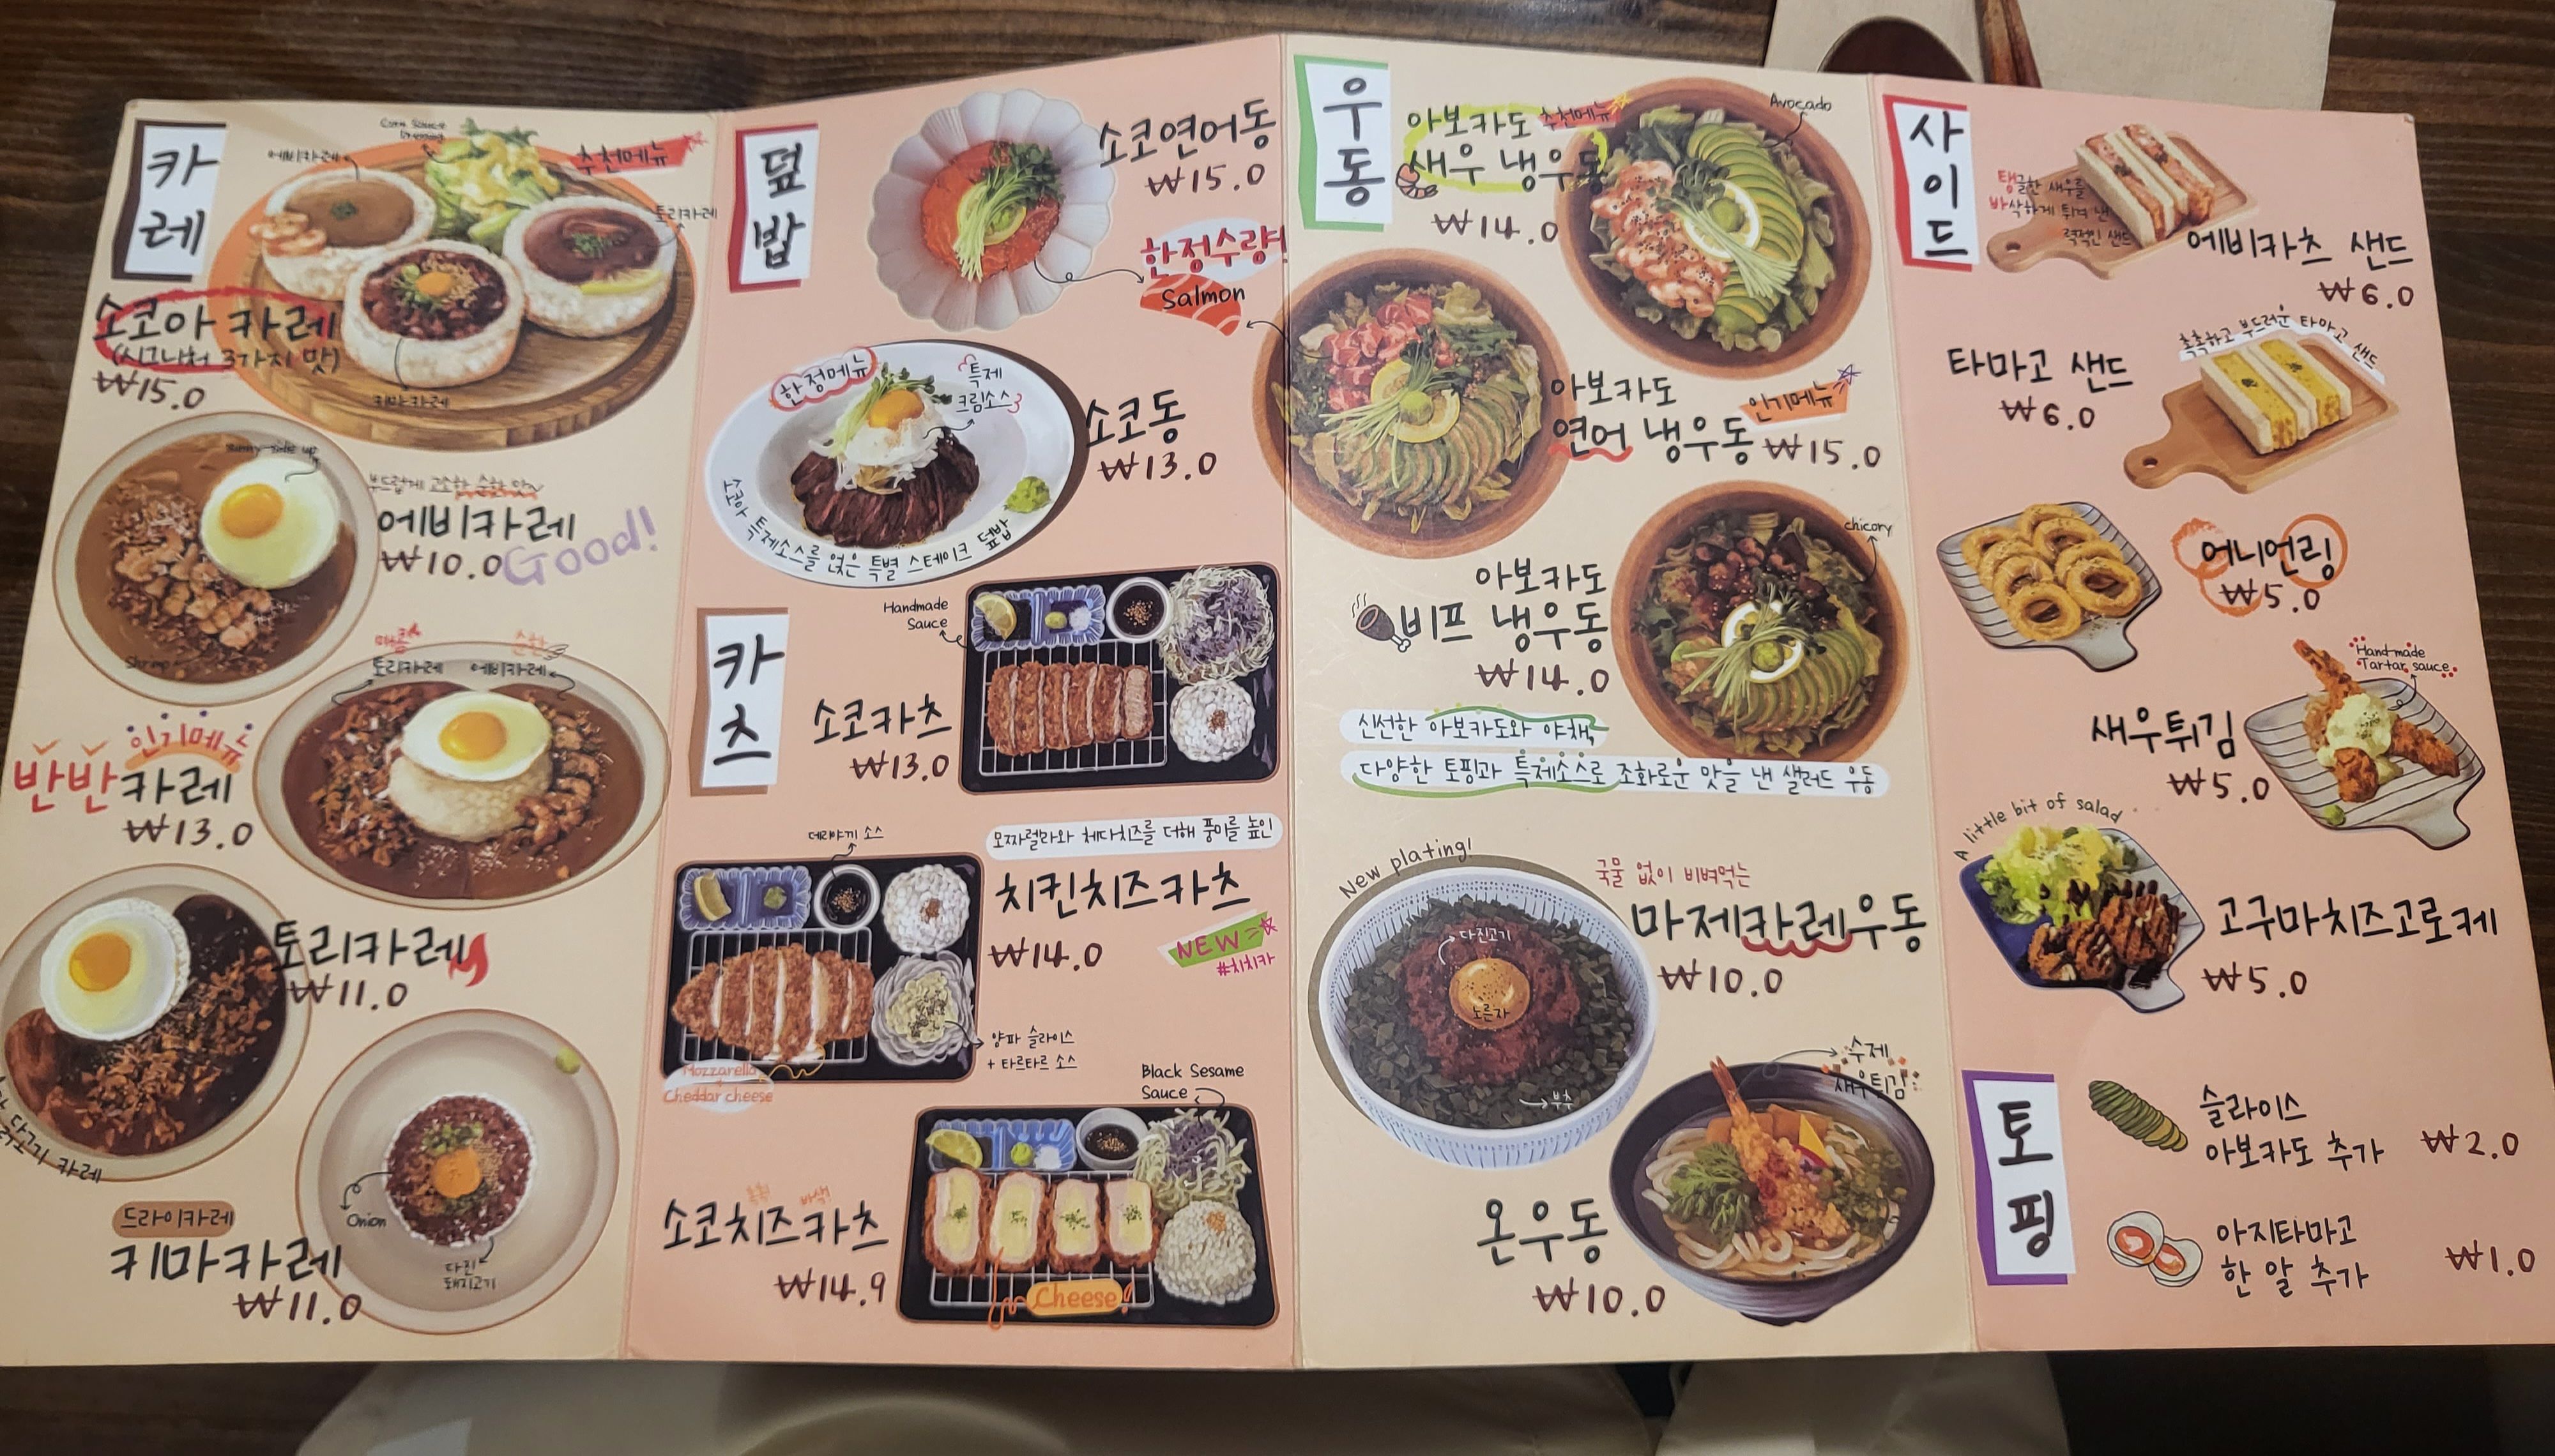 카레
Corn Sauce
에비카레
추천메뉴
토리카레
키마카레
소코아 카레
(시그니처 3가지 맛)
₩15.0
Sunny-side up
Shrimp
부드럽게 고소한 순한 맛~
에비카레
₩10.0
Good!
매콤
토리카레
순한
에비카레
인기메뉴
반반카레
₩13.0
토리카레
₩11.0
닭고기 카레
드라이카레
키마카레
₩11.0
Onion
다진
돼지고기
덮밥
소코연어동
₩15.0
한정수량!
Salmon
한정메뉴
특제
크림소스
소코동
₩13.0
소코아 특제소스를 얹은 특별 스테이크 덮밥
카츠
Handmade
Sauce
소코카츠
₩13.0
모짜렐라와 체다치즈를 더해 풍미를 높인
데리야끼 소스
치킨치즈카츠
₩14.0
NEW
#치치카
양파 슬라이스
+ 타르타르 소스
Mozzarella
+
Cheddar cheese
Black Sesame
Sauce
바삭
소코치즈카츠
₩14.9
Cheese!
우동
아보카도 추천메뉴
새우 냉우동
₩14.0
Avocado
아보카도
연어 냉우동
₩15.0
인기메뉴
chicory
아보카도
비프 냉우동
₩14.0
신선한 아보카도와 야채,
다양한 토핑과 특제소스로 조화로운 맛을 낸 샐러드 우동
New plating!
다진고기
노른자
부추
국물 없이 비벼먹는
마제카레우동
₩10.0
수제
새우튀김
온우동
₩10.0
사이드
탱글한 새우를
바삭하게 튀겨 낸
력적인 샌드
에비카츠 샌드
₩6.0
촉촉하고 부드러운 타마고 샌드
타마고 샌드
₩6.0
어니언링
₩5.0
Handmade
Tartar sauce
새우튀김
₩5.0
A little bit of salad
고구마치즈고로케
₩5.0
토핑
슬라이스
아보카도 추가 ₩2.0
아지타마고
한 알 추가 ₩1.0